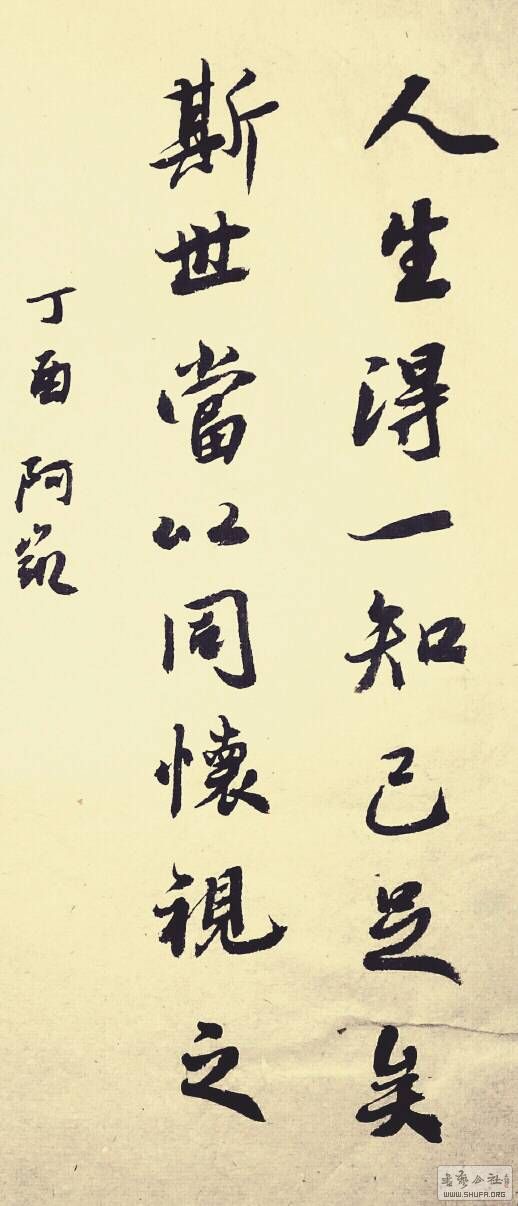 人生得一知己足矣
斯世當以同懷視之
丁酉 阿凱
WWW.SHUFA.ORG